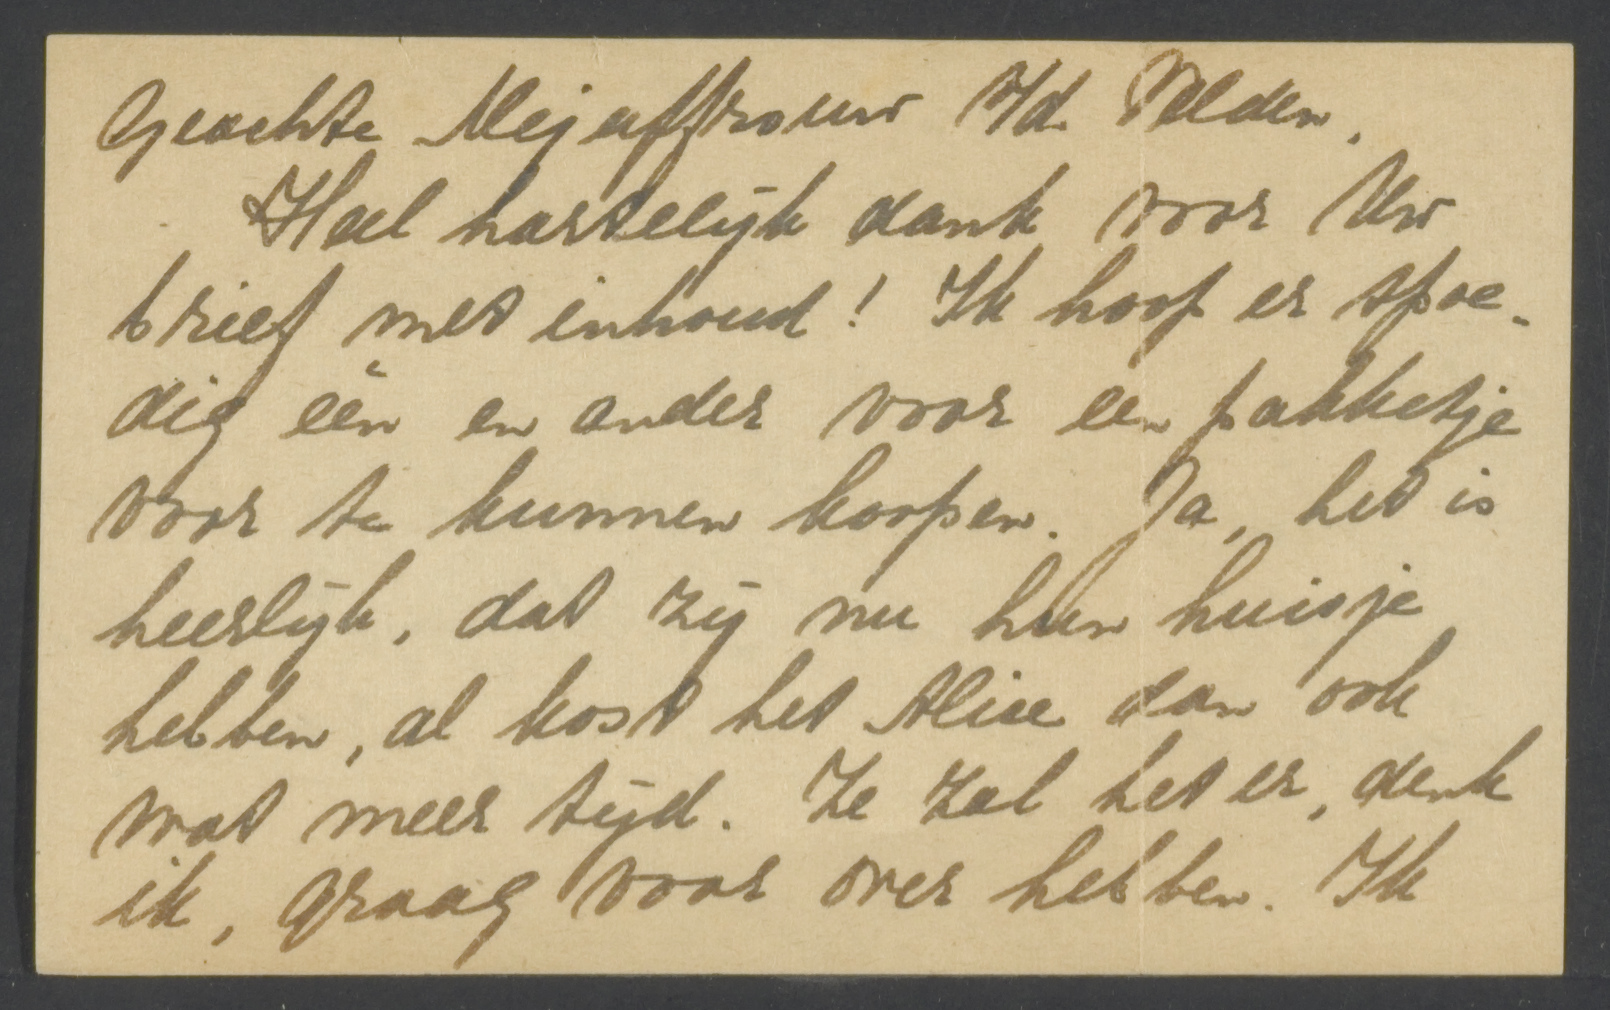 Geachte Mejuffrouw v/d. Velden,
Heel hartelijk dank voor Uw
brief met inhoud! Ik hoop er spoe-
dig één en ander voor een pakketje
voor te kunnen koopen. Ja, het is
heerlijk, dat zij nu hun huisje
hebben, al kost het Alice dan ook
wat meer tijd. Ze zal het er, denk
ik, graag voor over hebben. Ik